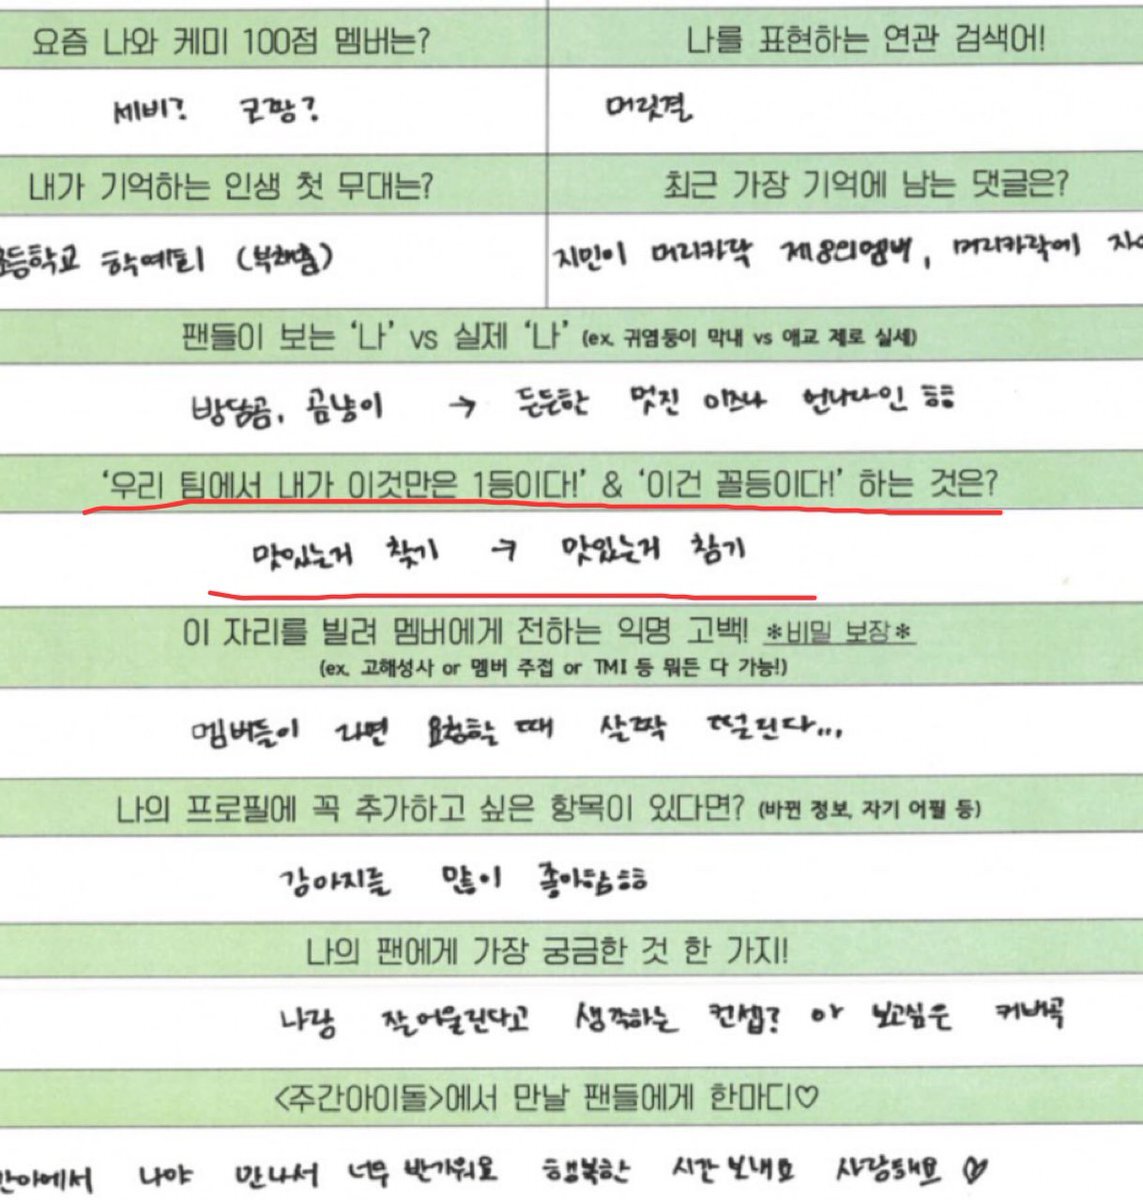 요즘 나와 케미 100점 멤버는?
세비? 코짱?
나를 표현하는 연관 검색어!
머릿결
내가 기억하는 인생 첫 무대는?
초등학교 학예회 (부채춤)
최근 가장 기억에 남는 댓글은?
지민이 머리카락 제8의멤버, 머리카락에 자아
팬들이 보는 '나' vs 실제 '나' (ex. 귀염둥이 막내 vs 애교 제로 실세)
방담곰, 곰냥이 → 든든한 멋진 이즈나 언니라인 ㅎㅎ
'우리 팀에서 내가 이것만은 1등이다!' & '이건 꼴등이다!' 하는 것은?
맛있는거 찾기 → 맛있는거 참기
이 자리를 빌려 멤버에게 전하는 익명 고백! *비밀 보장*
(ex. 고해성사 or 멤버 주접 or TMI 등 뭐든 다 가능!)
멤버들이 라면 요청할 때 살짝 떨린다...
나의 프로필에 꼭 추가하고 싶은 항목이 있다면? (바뀐 정보, 자기 어필 등)
강아지를 많이 좋아함ㅎㅎ
나의 팬에게 가장 궁금한 것 한 가지!
나랑 잘어울린다고 생각하는 컨셉? 아 보고싶은 커버곡
<주간아이돌>에서 만날 팬들에게 한마디♡
간아에서 나야 만나서 너무 반가워요 행복한 시간 보내요 사랑해요 ♡